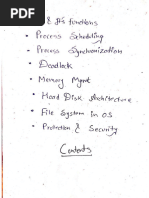 & its functions
• Process Scheduling
• Process Synchronization
• Deadlock
• Memory Mgmt
• Hard Disk Architecture
• File System in OS
• Protection & Security
Contents